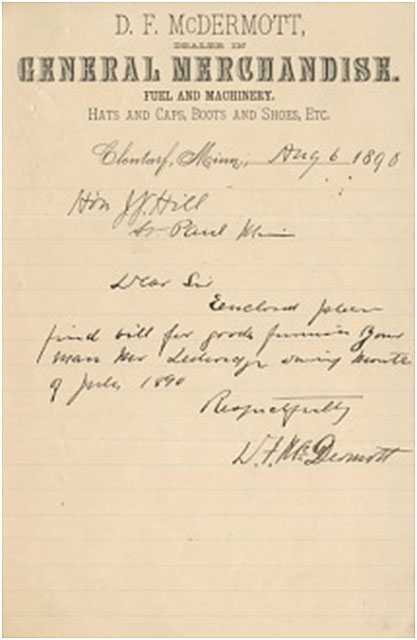 D. F. McDERMOTT,
DEALER IN
GENERAL MERCHANDISE.
FUEL AND MACHINERY.
HATS AND CAPS, BOOTS AND SHOES, ETC.
Clontarf, Minn., Aug 6 1890
Hon J. J. Hill
St Paul Minn
Dear Sir
Enclosed please
find bill for goods furnish your
man Mr during month
of July 1890
Respectfully
D. F. McDermott